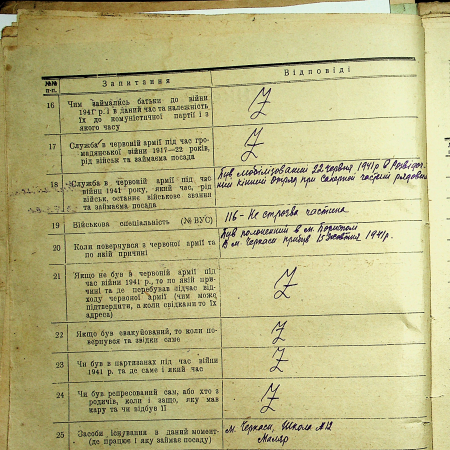 №№ п-п.
Запитання
Відповіді
16 Чим займались батьки до війни
1941 р. і в даний час та належність
їх до комуністичної партії і з
якого часу
Z
17 Служба в червоній армії під час гро-
мадянської війни 1917—22 років,
рід військ та займаєма посада
Z
18 Служба в червоній армії під час
війни 1941 року, який час, рід
військ, останнє військове звання
та займаєма посада
Був мобілізований 22 червня 1941 р. в Розвідоч-
ний кінний отряд при Саперной частині рядовим
19 Військова спеціяльність (№ ВУС)
116 - Не строєва частина
20 Коли повернувся з червоної армії та
по якій причині
Був полонений в м. Борисполі
В м. Черкаси прибув 15 жовтня 1941 р.
21 Якщо не був в червоній армії під
час війни 1941 р., то по якій при-
чині та де перебував підчас від-
ходу червоної армії (чим може
підтвердити, а коли свідками то їх
адреса)
Z
22 Якщо був евакуйований, то коли по-
вернувся та звідки саме
Z
23 Чи був в партизанах під час війни
1941 р. та де саме і який час
Z
24 Чи був репресований сам, або хто з
родичів, коли і защо, яку мав
кару та чи відбув її
Z
25 Засоби існування в даний момент
(де працює і яку займає посаду)
м. Черкаси, Школа №12
Маляр